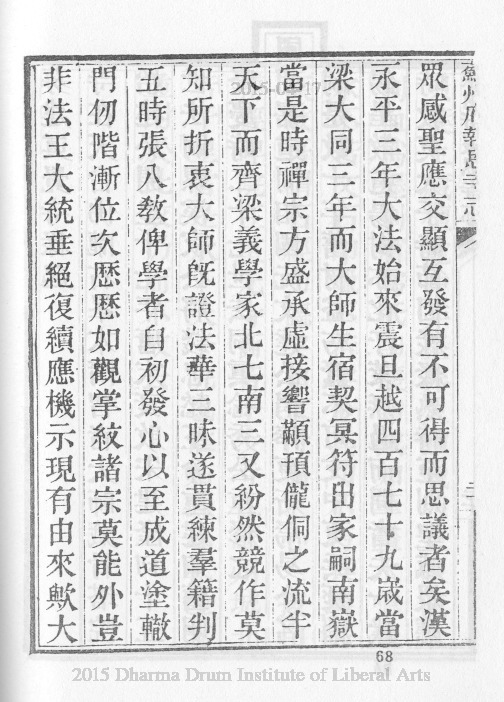 蘇州府報恩寺志
二
眾感聖應交顯互發有不可得而思議者矣漢
永平三年大法始來震旦越四百七十九歲當
梁大同三年而大師生宿契冥符出家嗣南嶽
當是時禪宗方盛承虛接響顢頇儱侗之流半
天下而齊梁義學家北七南三又紛然競作莫
知所折衷大師旣證法華三昧遂貫練羣籍判
五時張八敎俾學者自初發心以至成道塗轍
門仞階漸位次歷歷如觀掌紋諸宗莫能外豈
非法王大統垂絕復續應機示現有由來歟大
68
2015 Dharma Drum Institute of Liberal Arts